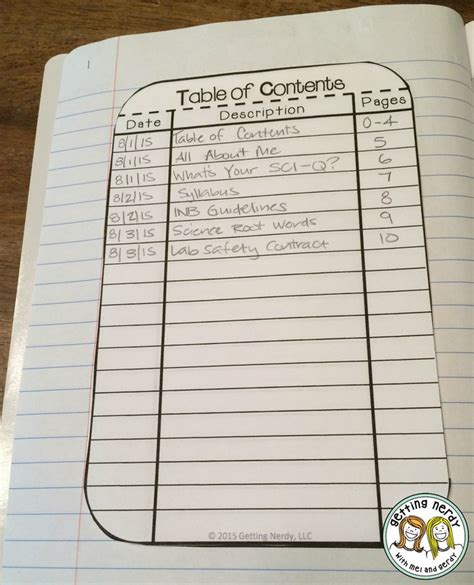 1
Table of Contents
Date Description Pages
8/1/15 Table of Contents 0-4
8/1/15 All About Me 5
8/1/15 What's Your SCI-Q? 6
8/2/15 Syllabus 7
8/2/15 INB Guidelines 8
8/3/15 Science Root Words 9
8/3/15 Lab Safety Contract 10
© 2015 Getting Nerdy, LLC
getting nerdy
with mel and gerdy